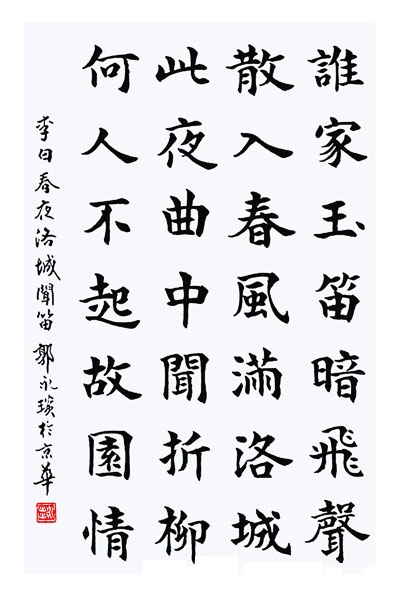 誰家玉笛暗飛聲
散入春風滿洛城
此夜曲中聞折柳
何人不起故園情
李白春夜洛城聞笛 郭永琰於京華